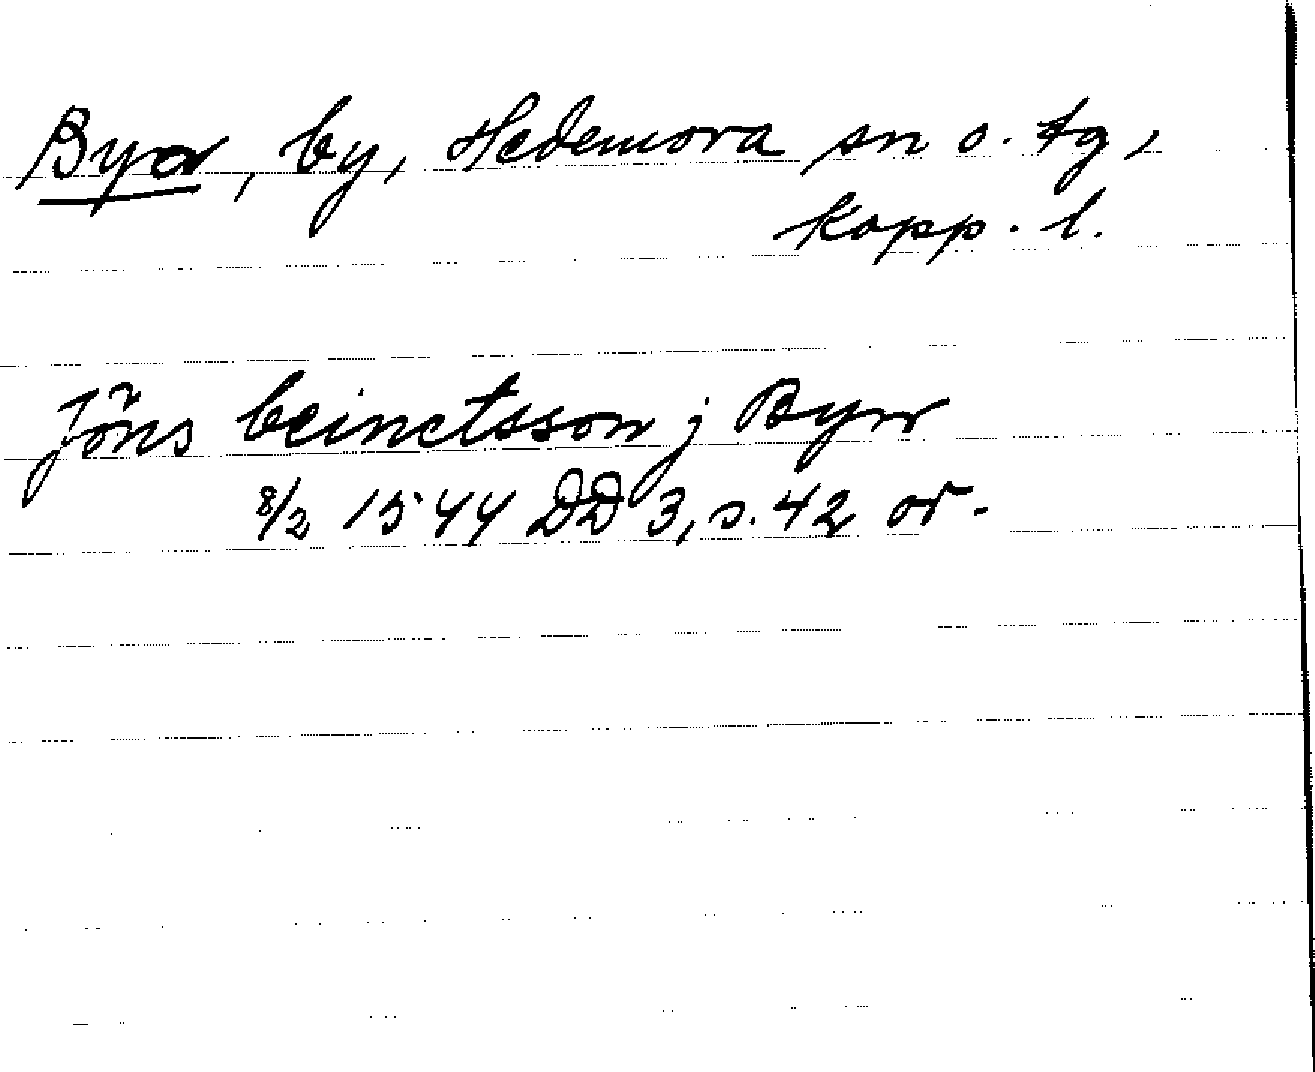 Byor, by, Hedemora sn o. tg,
Kopp. l.
Jöns beinctsson j Byrr
8/2 1544 DD 3, s. 42 or.